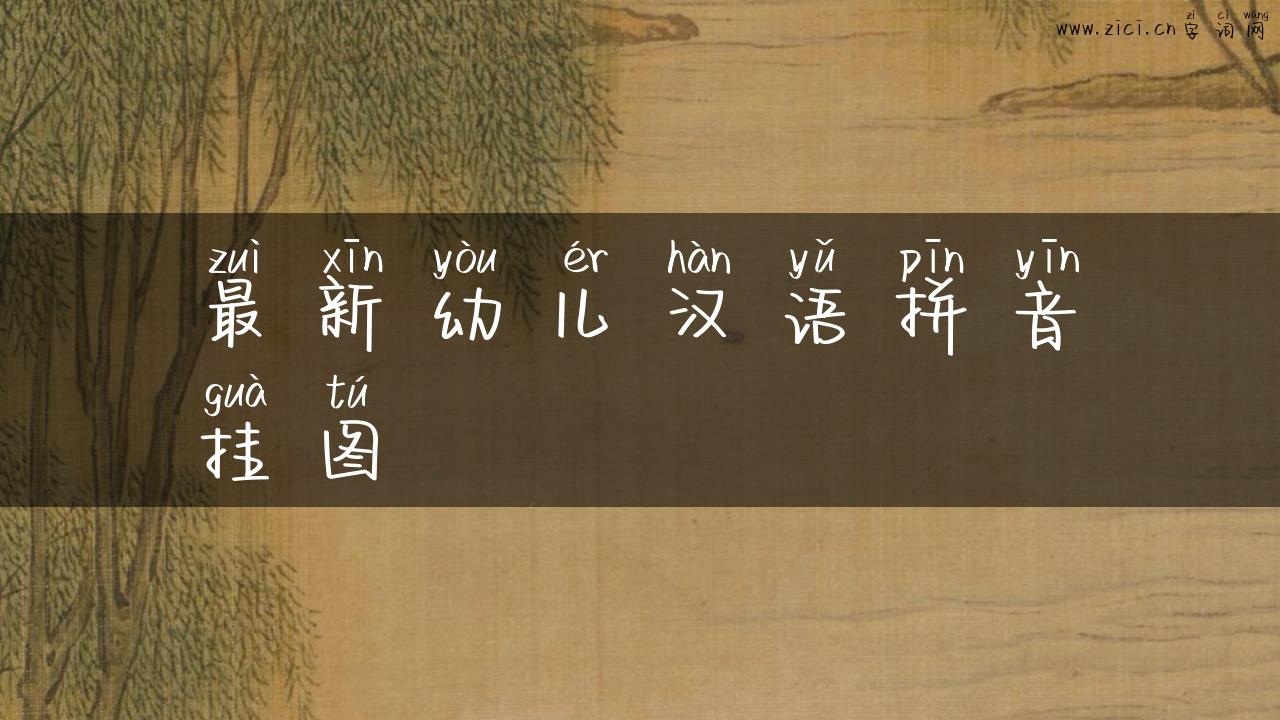 zì cí wǎng
www.zici.cn字词网
zuì xīn yòu ér hàn yǔ pīn yīn
最新幼儿汉语拼音
guà tú
挂图